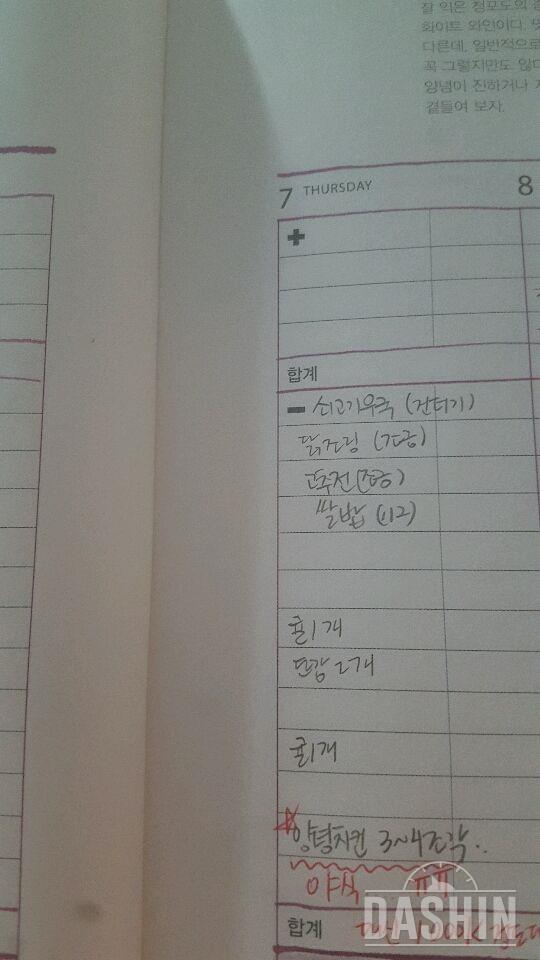 잘 익은 청포도의
화이트 와인이다.
다른데, 일반적으로
꼭 그렇지만도 않다
양념이 진하거나
곁들여 보자.
7 THURSDAY
8
+
합계
- 쇠고기우국 (건더기)
닭조림 (조금)
고추전(조금)
쌀밥
귤1개
단감 2개
귤1개
양념치킨 3~4조각..
야식 ㅠㅠ
합계
DASHIN